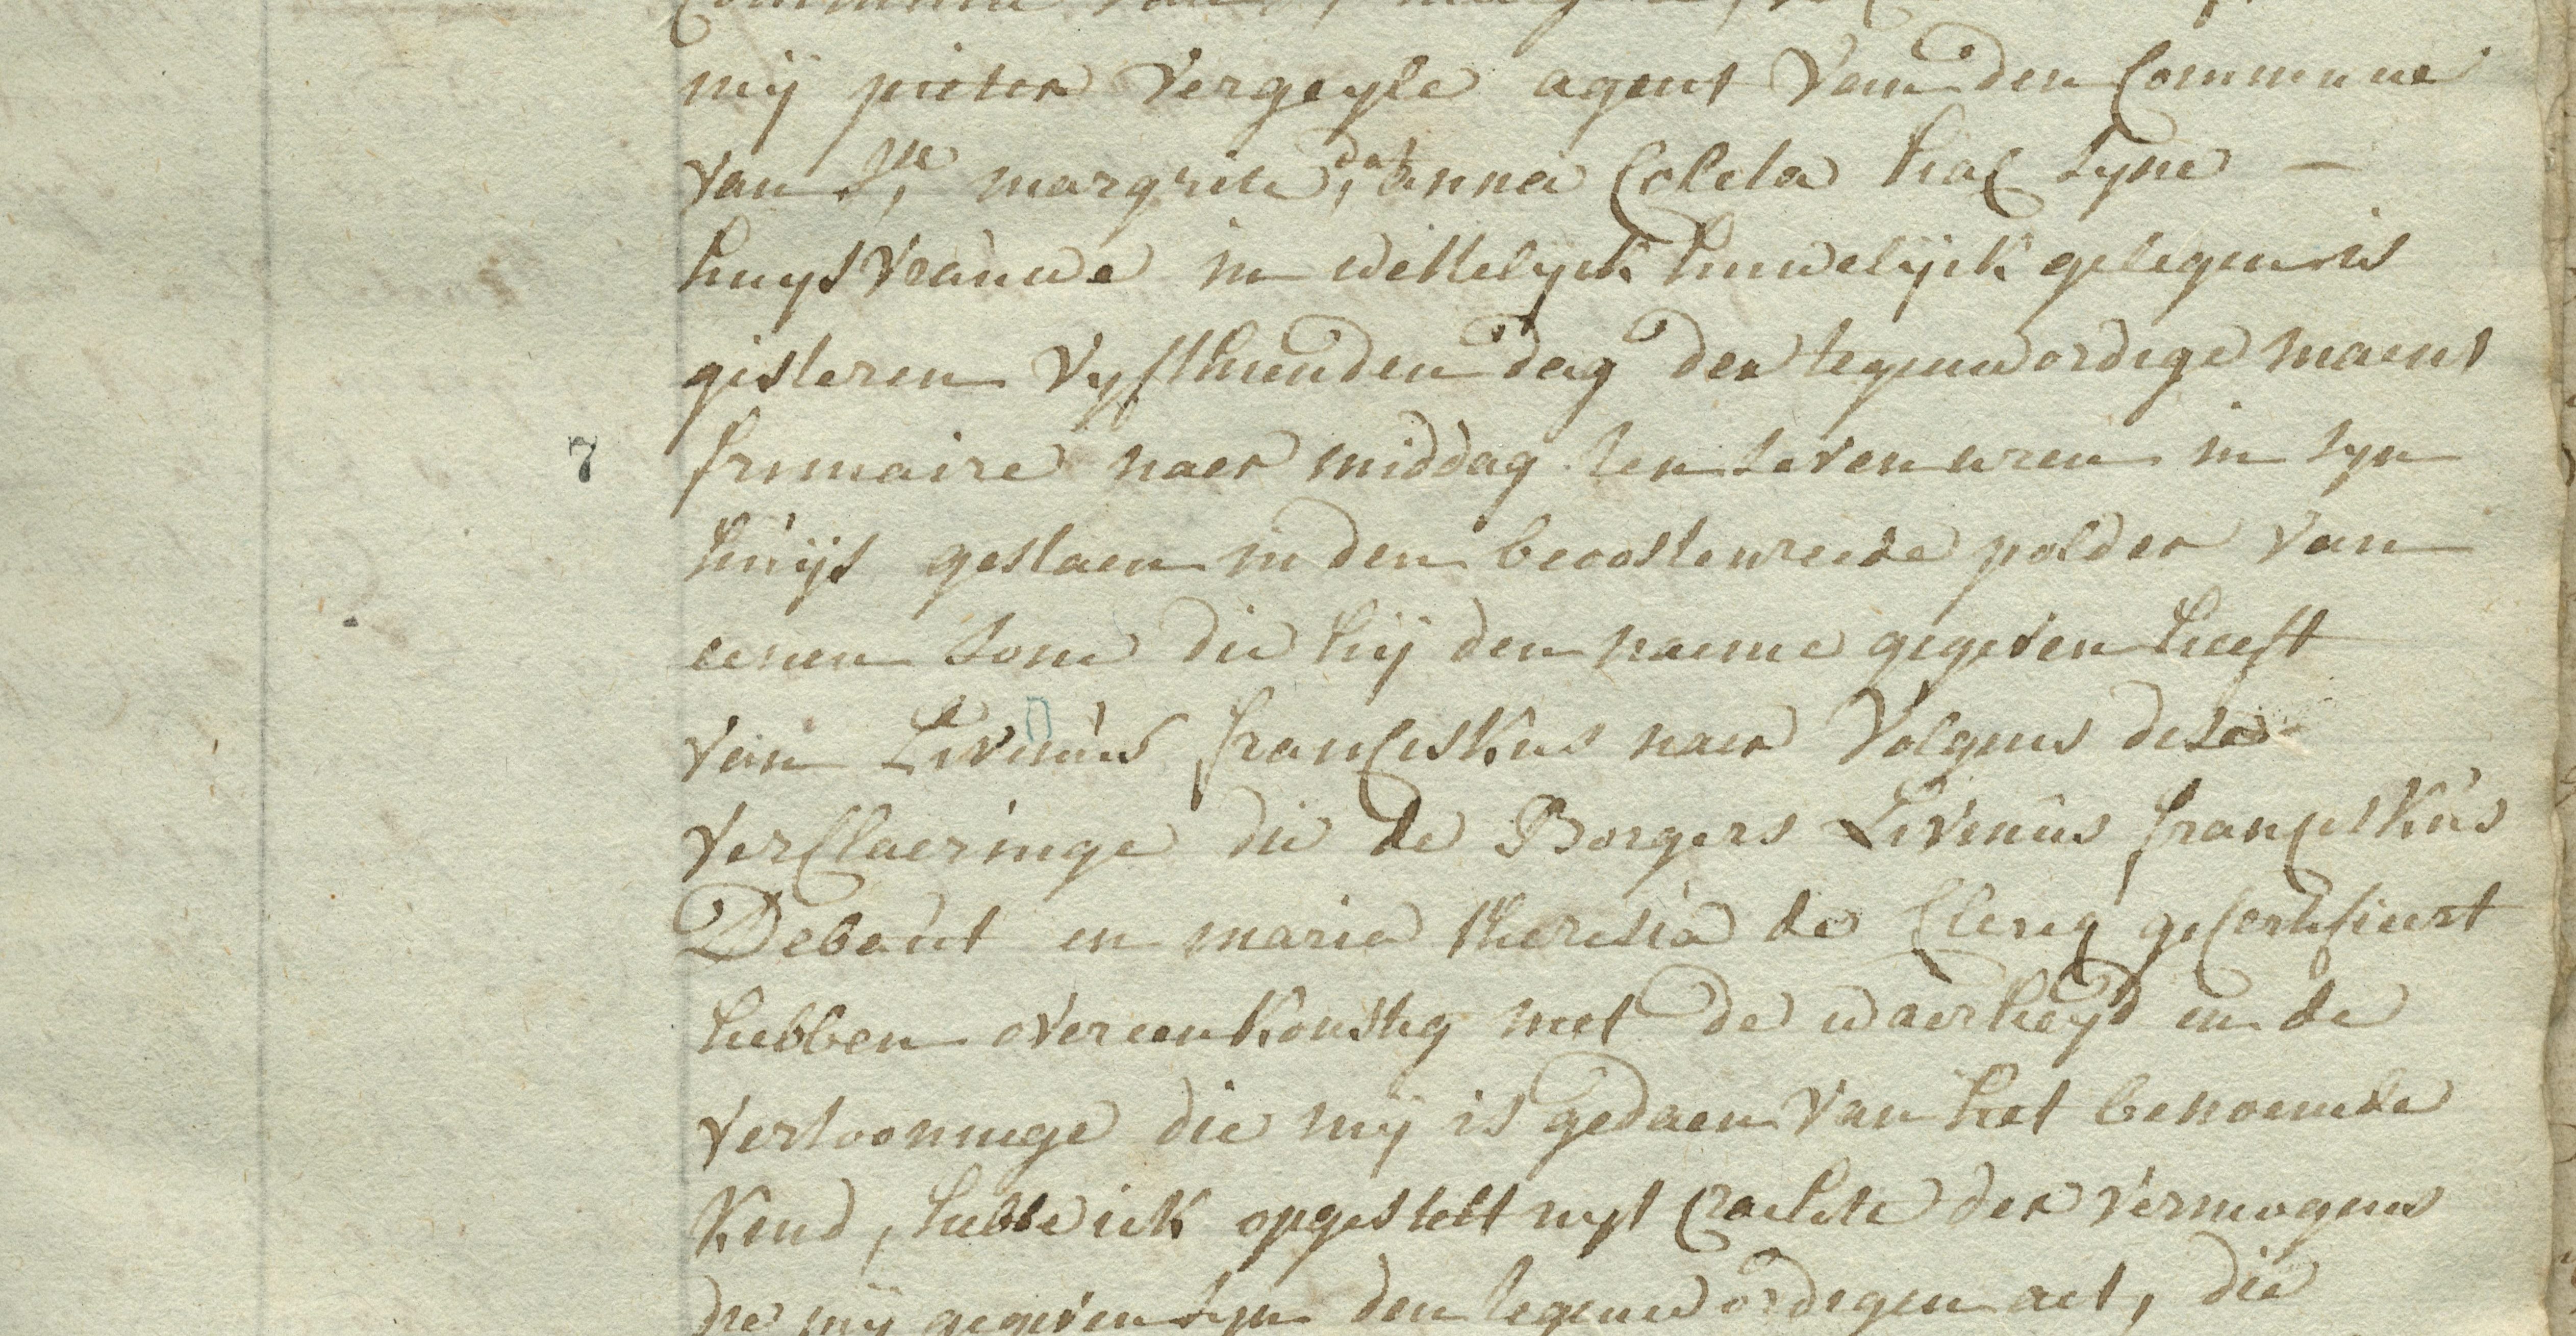 mij pieter Vergeyle agent Van den Commune
van Ste, margrite, dat anna Coleta hac syne —
huysvrauwe in wettelyck huwelijck gelegen is
gisteren vyfthienden dag der tegenwordige maent
7 frimaire naer middag ten seven uren in syn
huijs gestaen in den beoostenreide polder van
eenen sone die hij den naeme gegeven heeft
van Livinus franciskus naer volgens dese
verclaeringe die de Borgers Livinus franciskus
Debaut en maria theresia de Clerq gecertifieert
hebben overeenkonstig met de waerheyd en de
vertooninge die mij is gedaen van het benoemde
kind, hebbe ick opgestelt uyt crachte der vermogens
die mij gegeven syn den tegenwordigen act, die